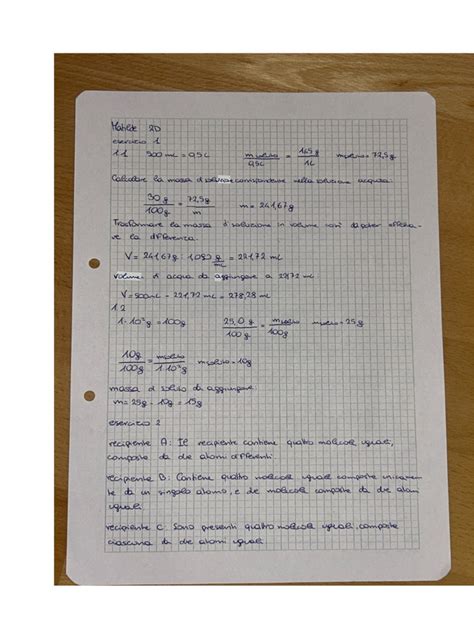 Matilde 2D
esercizio 1
1.1 500 mL = 0,5L m soluto/0,5L = 145 g/1L m soluto = 72,5g
Calcolare la massa di soluzione corrispondente nella soluzione acquosa:
30 g/100g = 72,5g/m m = 241,67g
Trasformare la massa di soluzione in volume così da poter effettua-
re la differenza.
V = 241,67g : 1,090 g/mL = 221,72 mL
volume di acqua da aggiungere a 221,72 mL
V = 500mL - 221,72 mL = 278,28 mL
1.2
1·10²g = 100g 25,0 g/100 g = m soluto/100g m soluto = 25g
10g/100g = m soluto/1·10²g m soluto = 10g
massa di soluto da aggiungere:
m = 25g - 10g = 15g
esercizio 2
recipiente A: Il recipiente contiene quattro molecole uguali,
composte da due atomi differenti.
recipiente B: Contiene quattro molecole uguali composte unicamen-
te da un singolo atomo, e due molecole composte da due atomi
uguali.
recipiente C: Sono presenti quattro molecole uguali, composte
ciascuna da due atomi uguali